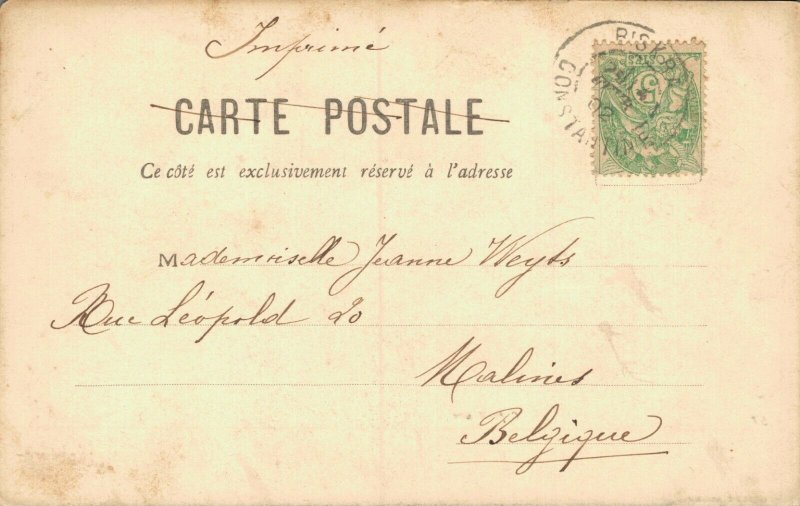 Imprimé
CARTE POSTALE
Ce côté est exclusivement réservé à l'adresse
BISKRA
CONSTANTINE
5
Mademoiselle Jeanne Weyts
Rue Léopold 20
Malines
Belgique